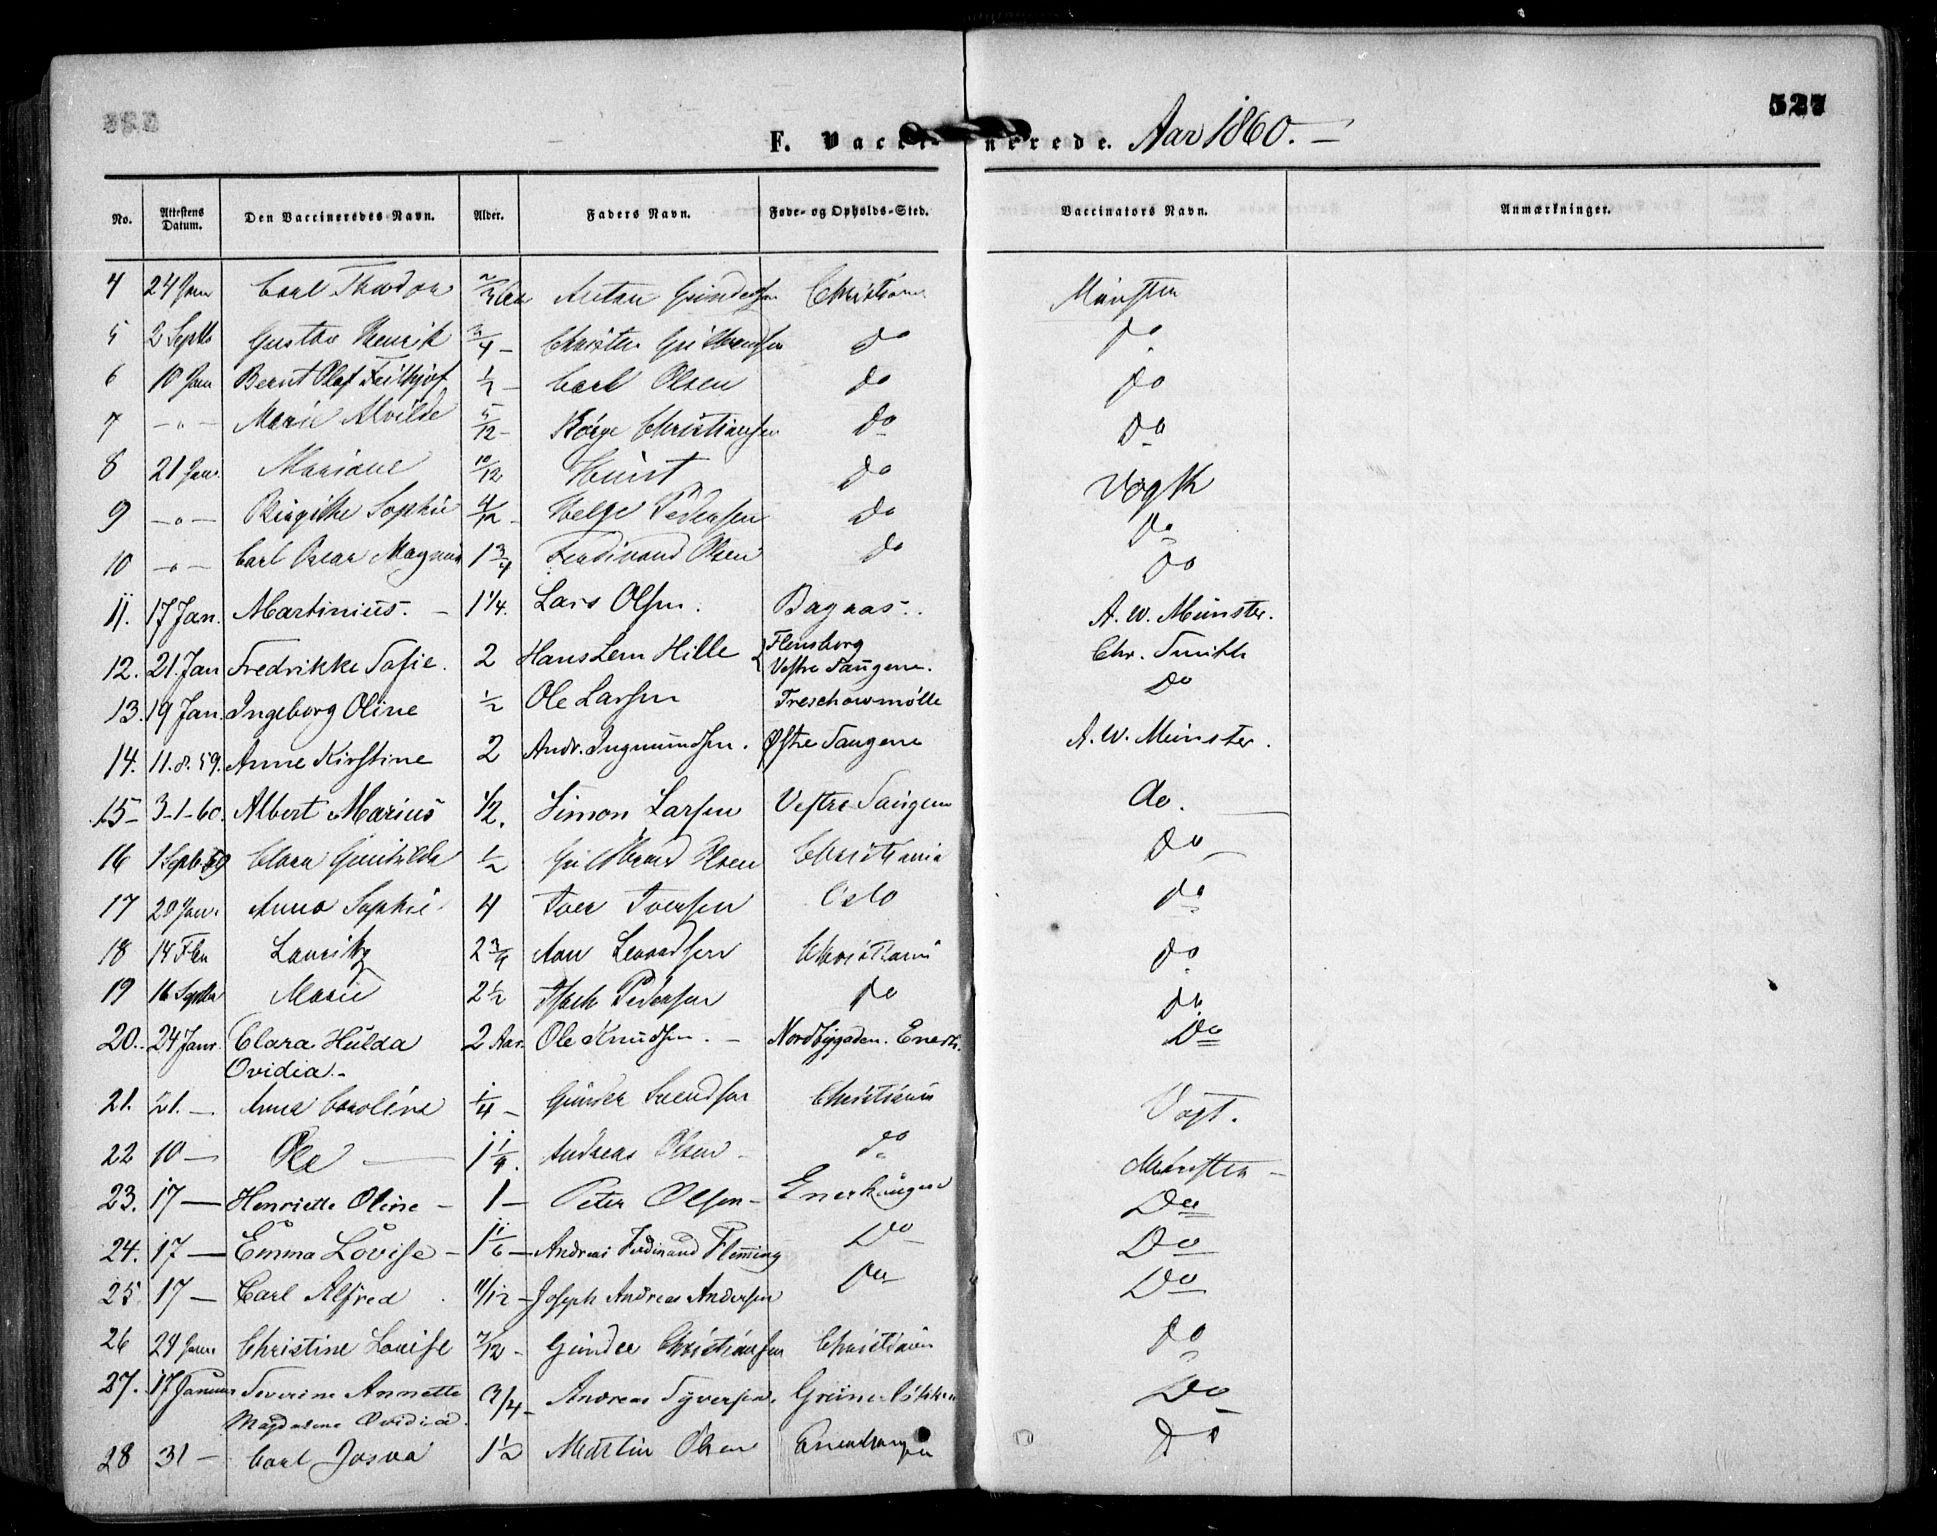 527
F. Vacci- nerede. Aar 1860. —
No. Attestens Datum. Den Vaccineredes Navn. Alder. Faders Navn. Føde- og Opholds-Sted. Vaccinators Navn. Anmærkninger.
4 24 Jan Carl Theodor Anton Christiania Münster
5 2 Septb Gustav Henrik 3/4 – Christen do do
6 10 Jan Bernt Olaf Frithjof 1/2 – Carl Olsen do do
7 –"– Marie Alvilde 5/12 – Børge Christiansen do do
8 21 Jan. Mariane 10/12 do Vogt
9 –"– Birgithe Sophie 4/12 – Helge Pedersen do do
10 –"– Carl Oscar Magnus 1 3/4 Ferdinand Olsen do do
11. 17 Jan. Martinius. – 1 1/4. Lars Olsen. Bagaas. A. W. Münster.
12. 21. Jan Fredrikke Sofie. 2 Hans Lem Hille { Flensborg
Vestre Taugene. Chr. Smith
13. 19 Jan. Ingeborg Oline 1/2 Ole Larsen Treschowmølle Do
14. 11. 8. 59. Anne Kirstine 2 Andr. Ingmundsen. Østre Taugene A. W. Münster.
15– 3–1–60. Albert Marius 1/2. Simon Larsen Vestre Taugene do.
16 1 Septb 59 Clara Gunhilda 1/2 Guldbrand Olsen Christiania do
17 20 Jan. Anna Sophie 4 Iver Iversen Oslo do
18 14 Feb Lauritz 2 3/4 Christiania do
19 16 Septbr Marie 2 1/2 Pedersen do do
20. 24 Janr. Clara Hulda 2 Aar. Ole Knudsen. – Nordbygaden. Enerh. Do
Ovidia. –
21. 21. – Anna Caroline 1/4 – Gunder Svendsen Christiania Vogt.
22 10 – Ole 1 1/4. Andreas Olsen do Münster –
23. 17 – Henriette Oline – 1 – Peter Olsen – Enerhaugen Do
24. 17 – Emma Lovise – 1 1/6 – Andreas Ferdinand Flemming Do Do
25. 17 – Carl Alfred. 11/12 – Joseph Andreas Andersen Do Do
26 24 Jan Christine Louise 7/12 – Gunder Christiansen Christiania do
27. 17 Januar Severine Annette 3/4 – Andreas Syversen. Grünerløkken Do
Magdalene Ovidia.
28 31 – Carl Josva 1 1/2 Martin Olsen Enerhaugen do